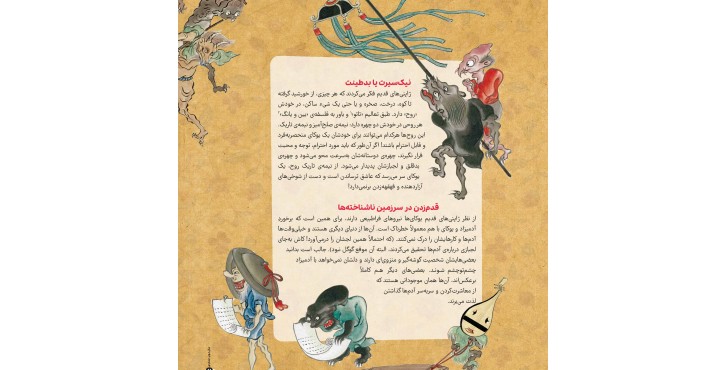 نیک‌سیرت یا بدطینت
ژاپنی‌های قدیم فکر می‌کردند که هر چیزی، از خورشید گرفته
تا کوه، درخت، صخره و یا حتی یک شیء ساکن، در خودش
«روح» دارد. طبق تعالیم «تائو» و باور به فلسفه‌ی «یین و یانگ»،
هر روحی در خودش دو چهره دارد: نیمه‌ی صلح‌آمیز و نیمه‌ی تاریک.
این روح‌ها هرکدام می‌توانند برای خودشان یک یوکای منحصربه‌فرد
و قابل احترام باشند! اگر آن‌طور که باید مورد احترام، توجه و محبت
قرار نگیرند، چهره‌ی دوستانه‌شان به‌سرعت محو می‌شود و چهره‌ی
بدقلق و لجبازشان پدیدار می‌شود. از نیمه‌ی تاریک روح، یک
یوکای سر می‌رسد که عاشق ترساندن است و دست از شوخی‌های
آزاردهنده و قهقهه‌زدن برنمی‌دارد!
قدم‌زدن در سرزمین ناشناخته‌ها
از نظر ژاپنی‌های قدیم یوکای‌ها نیروهای فراطبیعی دارند، برای همین است که برخورد
آدمیزاد و یوکای با هم معمولاً خطرناک است. آن‌ها از دنیای دیگری هستند و خیلی وقت‌ها
آدم‌ها و کارهایشان را درک نمی‌کنند. (که احتمالاً همین لجشان را درمی‌آورد! کاش به‌جای
لجبازی درباره‌ی آدم‌ها تحقیق می‌کردند، البته آن موقع گوگل نبود). جالب است بدانید
بعضی‌هایشان شخصیت گوشه‌گیر و منزوی‌ای دارند و دلشان نمی‌خواهد با آدمیزاد
چشم‌توچشم شوند. بعضی‌های دیگر هم کاملاً
برعکس‌اند. آن‌ها همان موجوداتی هستند که
از معاشرت‌کردن و سربه‌سر آدم‌ها گذاشتن
لذت می‌برند.